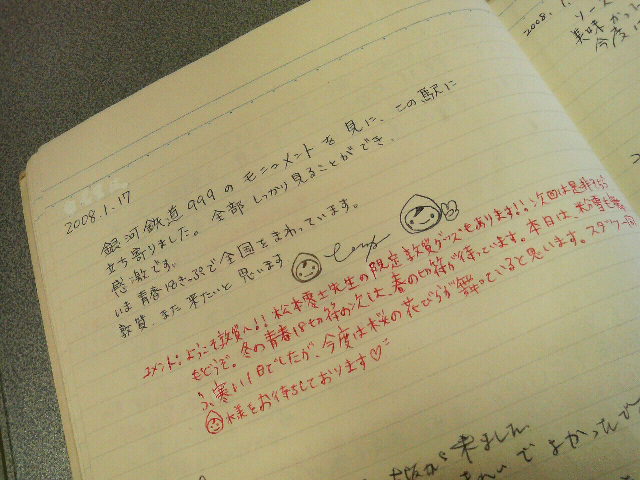 2008.1.
ソース
美味かっ
今度
2008.1.17
銀河鉄道999のモニュメントを見に、この駅に
立ち寄りました。全部しっかり見ることができ、
感激です。
いま青春18きっぷで全国をまわっています。
敦賀、また来たいと思います
コメント:ようこそ敦賀へ!!松本零士先生の限定敦賀グッズもあります!!次回は是非
もどうぞ。冬の青春18切符の次は、春の切符が待っています。本日は、松零士
寒い1日でしたが、今度は桜の花びらが舞っていると思います。スタッフ一同
様をお待ちしております♡
から来ました
でよかったで